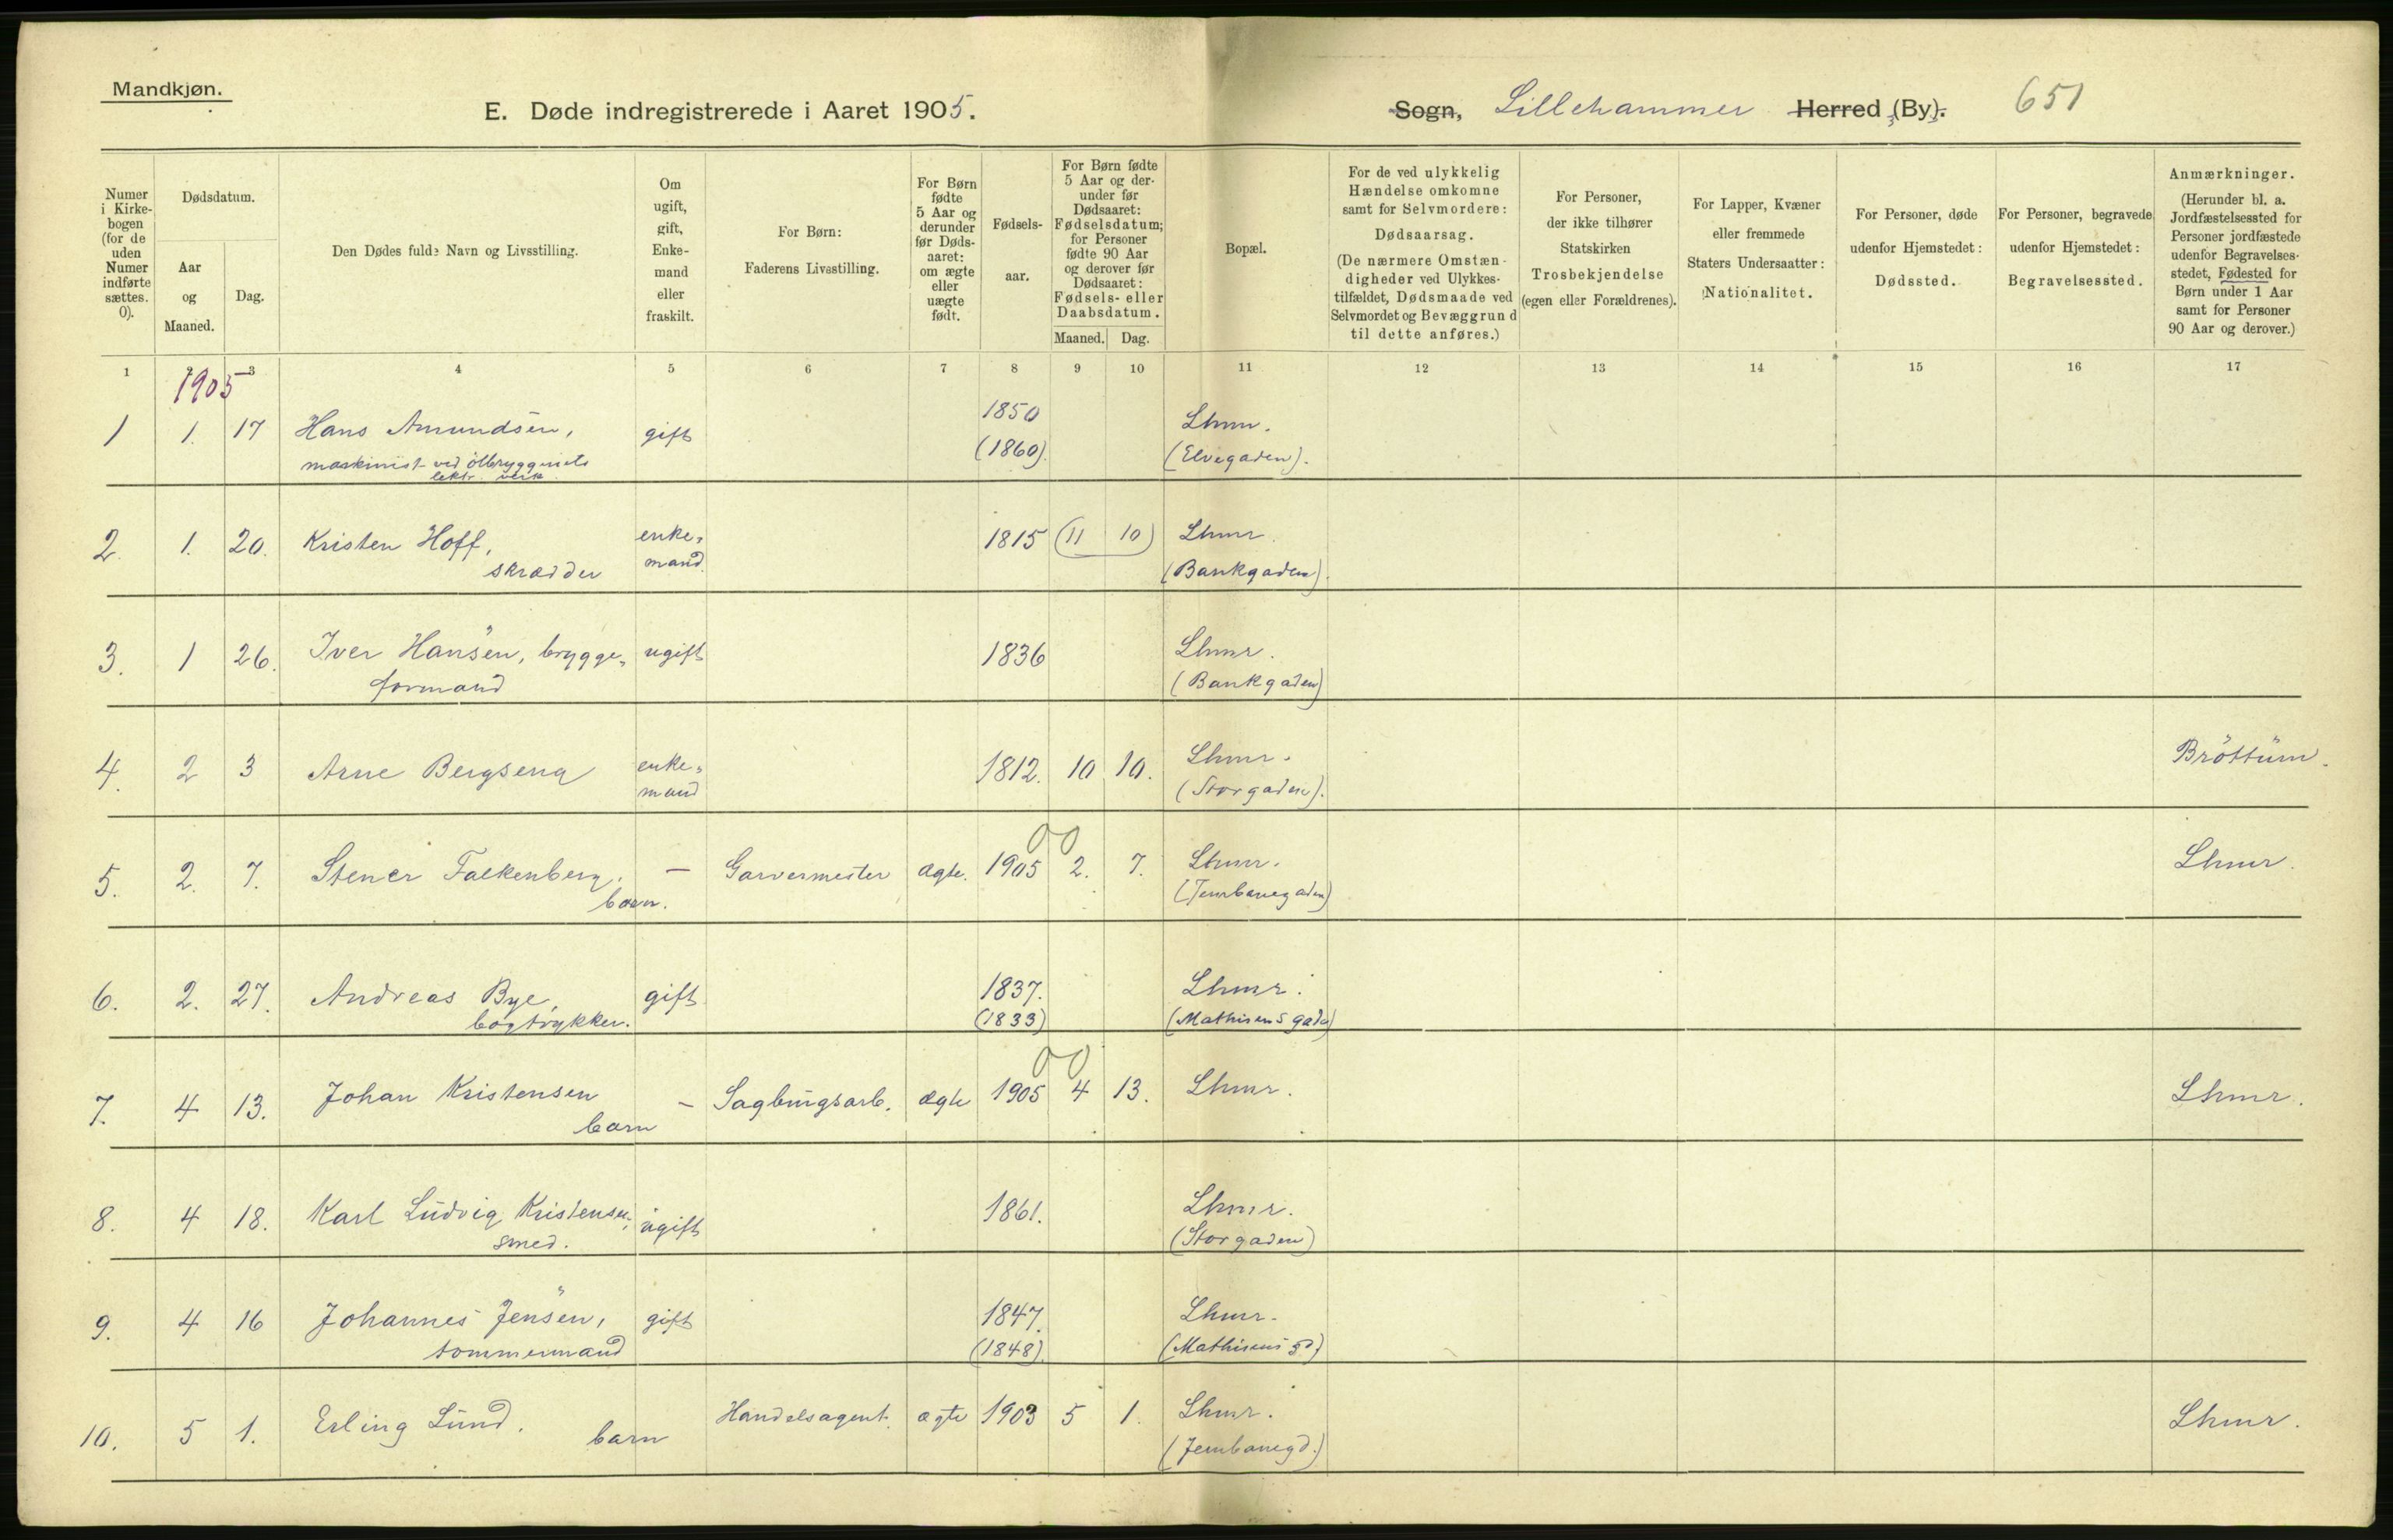 Mandkjøn.
E. Døde indregistrerede i Aaret 1905.
Sogn, Lillehammer Herred (By).
651
Numer i Kirke-bogen (for de uden Numer indførte sættes. 0).
Dødsdatum.
Aar og Maaned.
Dag.
Den Dødes fulde Navn og Livsstilling.
Om ugift, gift, Enke-mand eller fraskilt.
For Børn: Faderens Livsstilling.
For Børn fødte 5 Aar og derunder før Døds-aaret: om ægte eller uægte født.
Fødsels-aar.
For Børn fødte 5 Aar og der-under før Dødsaaret: Fødselsdatum; for Personer fødte 90 Aar og derover før Dødsaaret: Fødsels- eller Daabsdatum.
Maaned. Dag.
Bopæl.
For de ved ulykkelig Hændelse omkomne samt for Selvmordere: Dødsaarsag. (De nærmere Omstæn-digheder ved Ulykkes-tilfældet, Dødsmaade ved Selvmordet og Bevæggrund til dette anføres.)
For Personer, der ikke tilhører Statskirken Trosbekjendelse (egen eller Forældrenes).
For Lapper, Kvæner eller fremmede Staters Undersaatter: Nationalitet.
For Personer, døde udenfor Hjemstedet: Dødssted.
For Personer, begravede udenfor Hjemstedet: Begravelsessted.
Anmærkninger. (Herunder bl. a. Jordfæstelsessted for Personer jordfæstede udenfor Begravelses-stedet, Fødested for Børn under 1 Aar samt for Personer 90 Aar og derover.)
1 2 3 4 5 6 7 8 9 10 11 12 13 14 15 16 17
1905
1 1. 17 Hans Amundsen, gift 1850 Lhmr.
maskinist ved ölbryggeriets (1860). (Elvegaden).
lektr. verk
2. 1. 20. Kristen Hoff, enke- 1815 (11 10) Lhmr.
skrædder mand. (Bankgaden).
3. 1 26. Iver Hansen, brygge- ugift 1836 Lhmr.
formand (Bankgaden)
4. 2 3 Arne Bergseng enke- 1812. 10 10. Lhmr. Bröttum.
mand (Storgaden).
5. 2. 7. Stener Falkenberg. — Garvermester ægte. 1905 2. 7. Lhmr. Lhmr.
barn. (Jernbanegaden)
6. 2. 27. Andreas Bye, gift 1837. Lhmr.
bogtrykker. (1833) (Mathisens gade)
7. 4 13. Johan Kristensen — Sagbrugsarb. ægte 1905 4 13. Lhmr. Lhmr.
barn
8. 4 18. Karl Ludvig Kristensen, ugift 1861. Lhmr.
smed. (Storgaden)
9. 4 16 Johannes Jensen, gift 1847. Lhmr.
tømmermand (1848). (Mathisens gd)
10. 5 1. Erling Lund. Handelsagent. ægte 1903 5 1. Lhmr. Lhmr.
barn (Jernbanegd.)